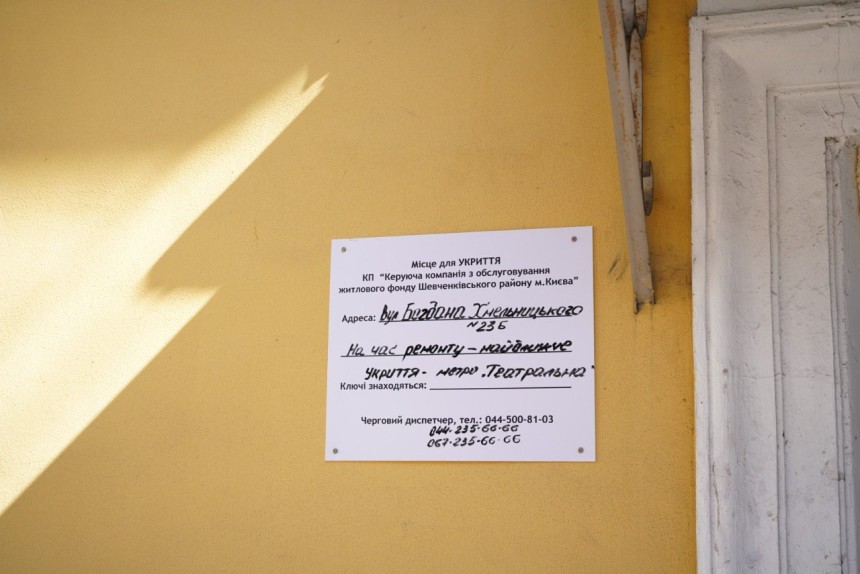 Місце для УКРИТТЯ
КП "Керуюча компанія з обслуговування
житлового фонду Шевченківського району м.Києва"
Адреса: Вул Богдана Хмельницького
№23Б
На час ремонту – найближче
укриття - метро "Театральна"
Ключі знаходяться:
Черговий диспетчер, тел.: 044-500-81-03
044-235-66-66
067-235-66-66